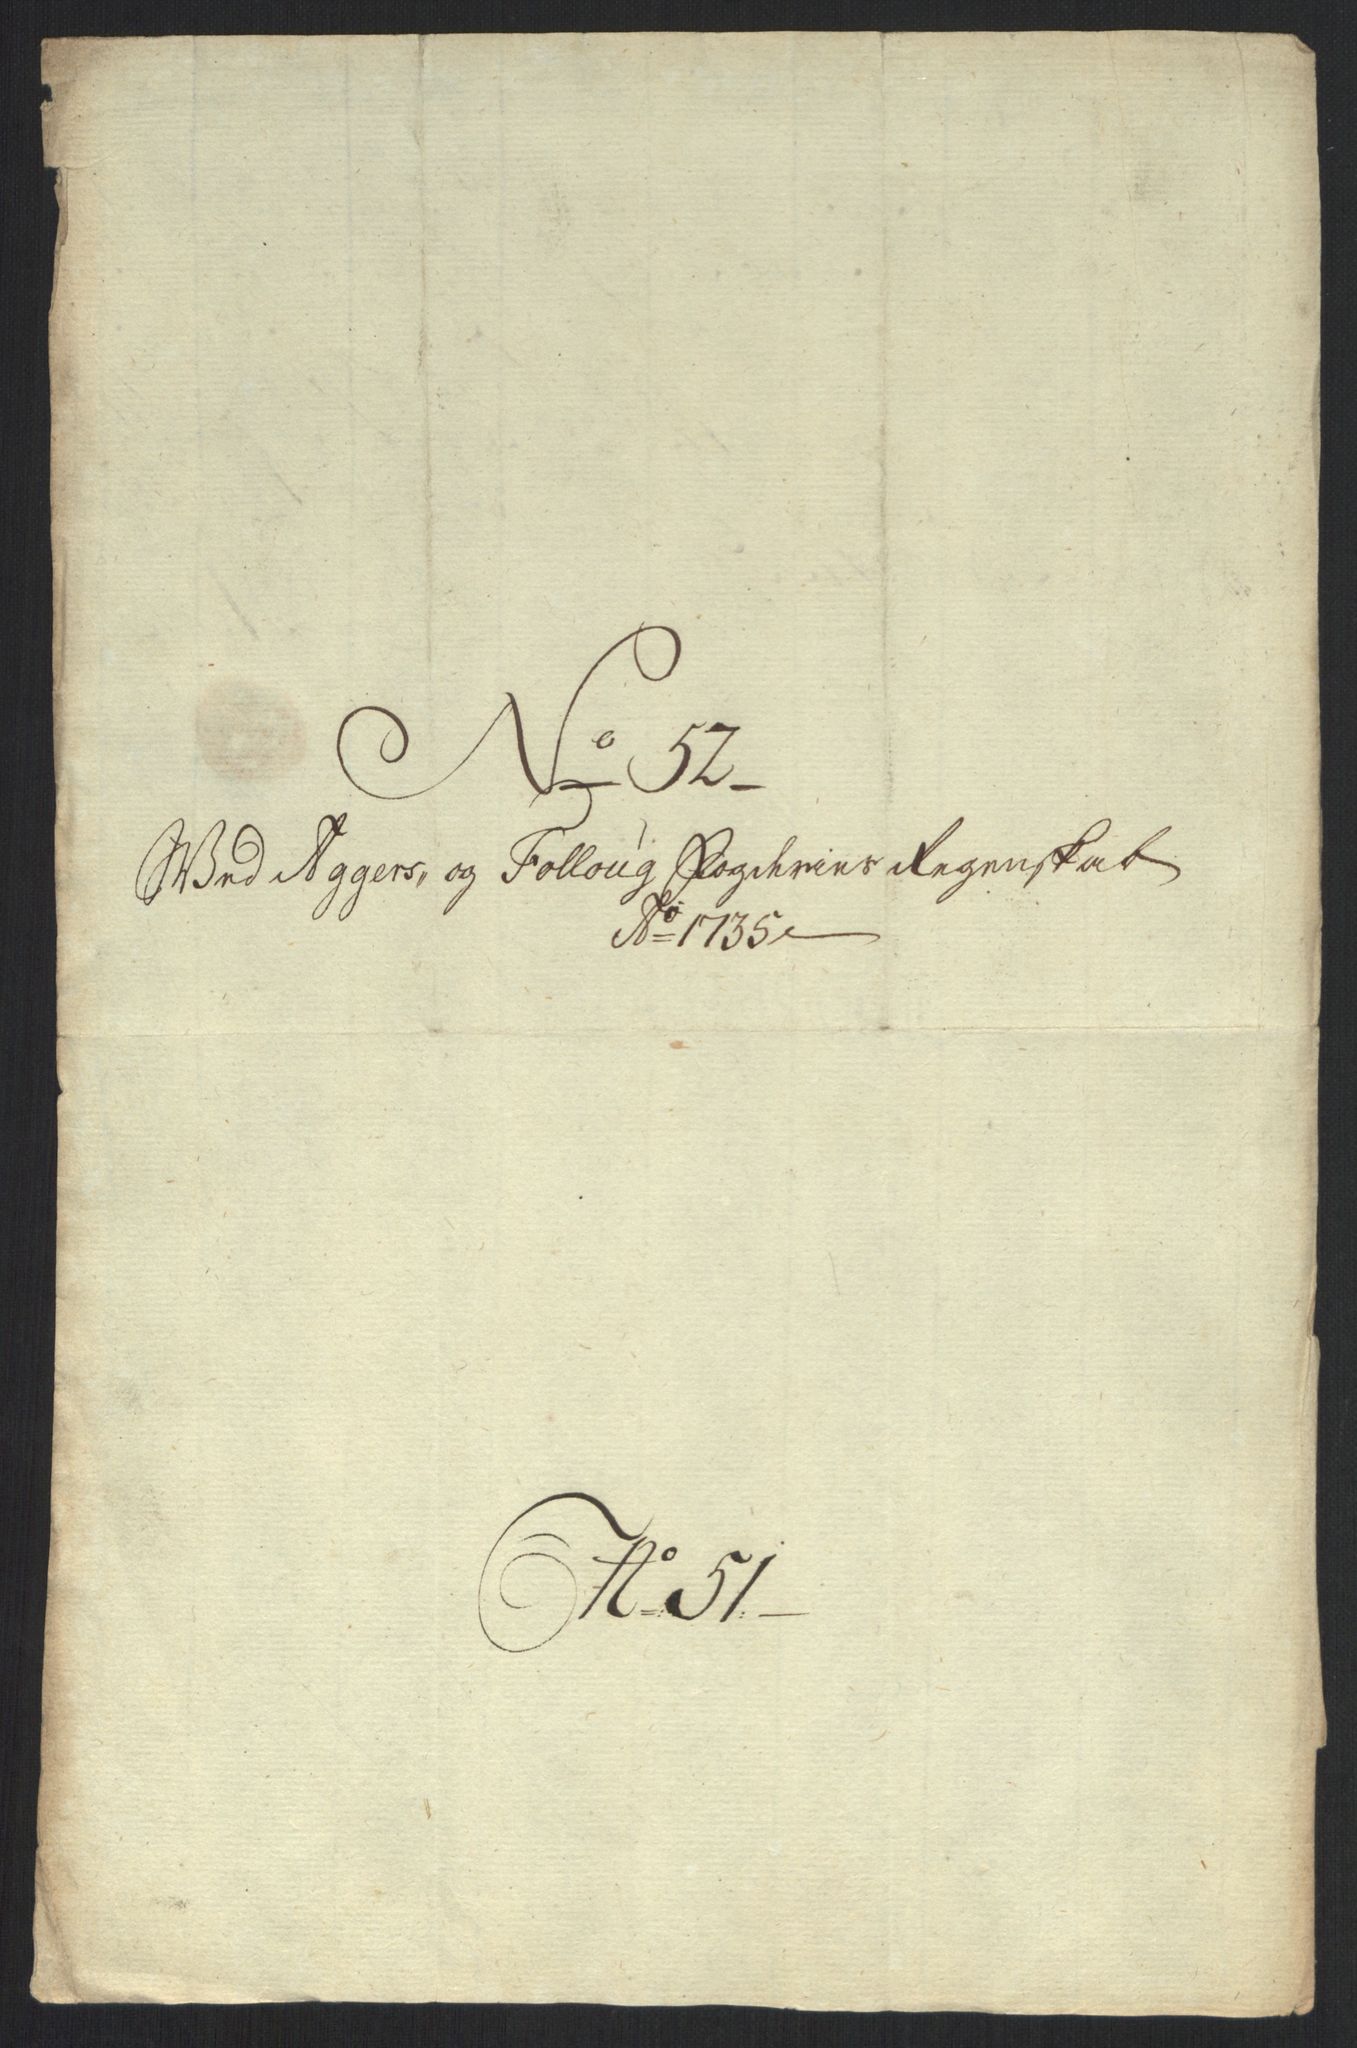 No 52
Wed Aggers, og Folloug Fogderies Regenskab
Ao 1735
No 51